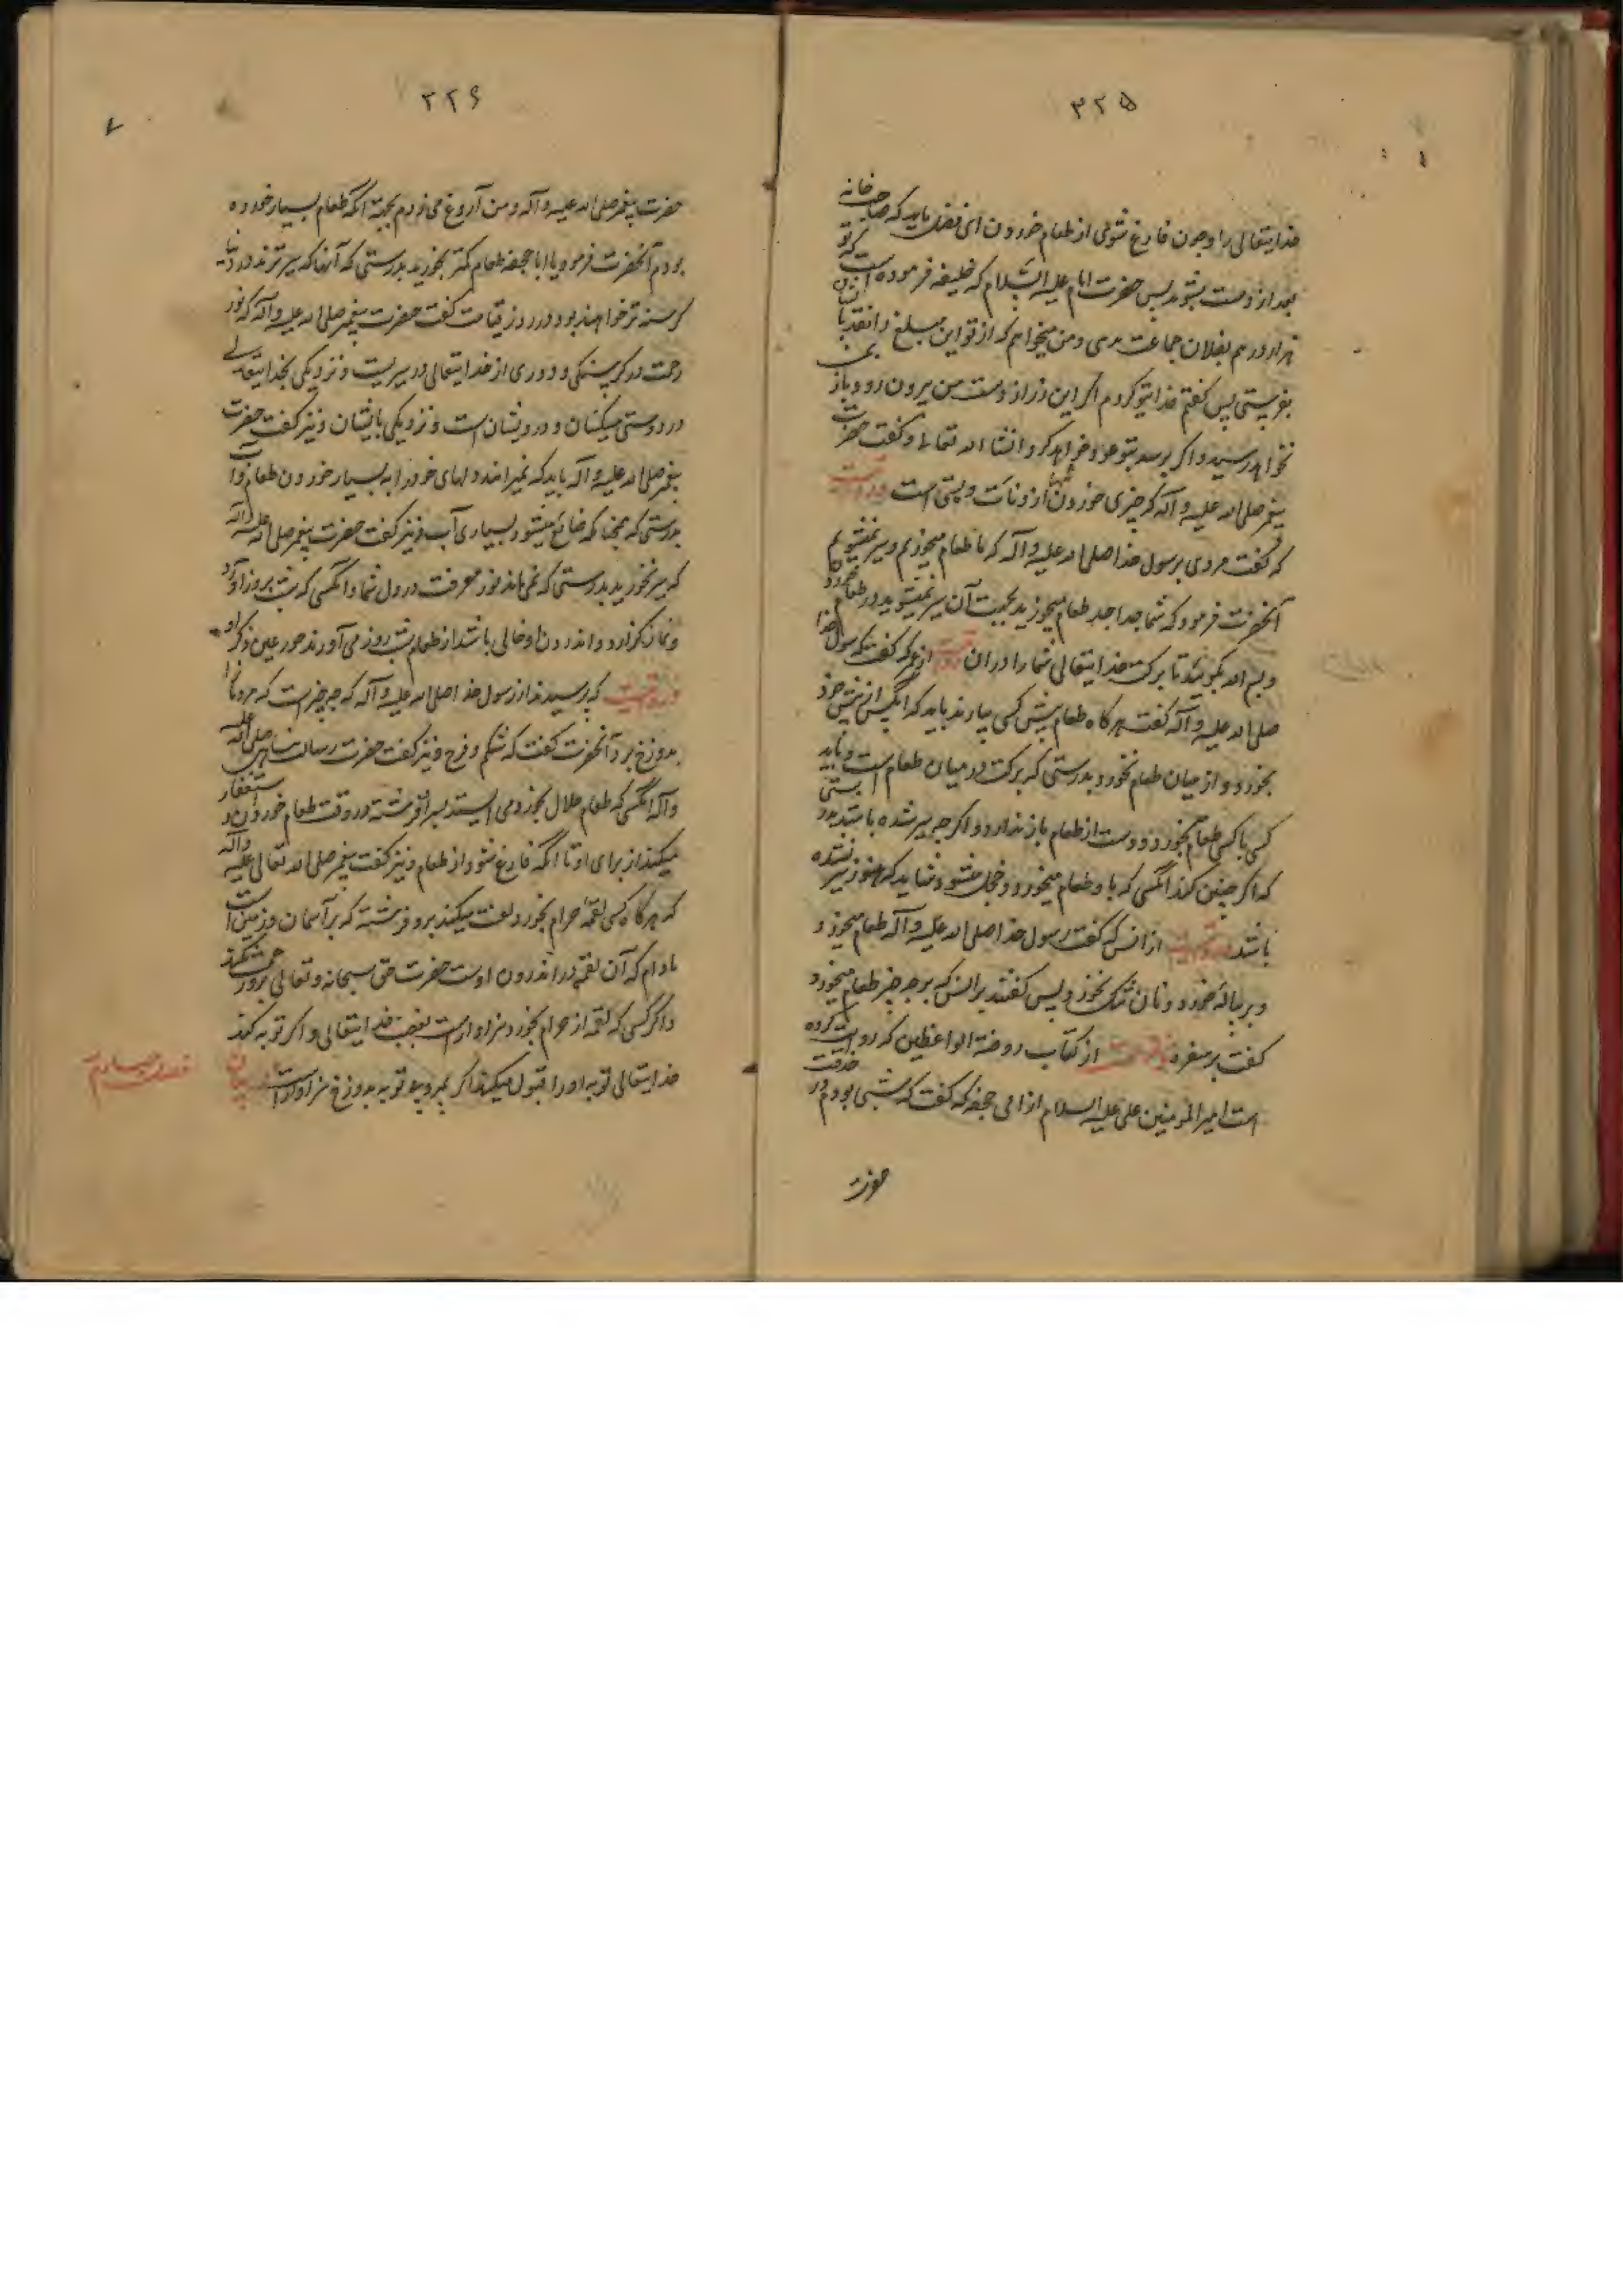 ۳۲۵
خدایتعالی را و چون فارغ شوی از طعام خوردن ای فضل باید که صاحب خانه
بعد از دست بشوید پس حضرت امام علیه السلام که خلیفه فرموده است که تو
هزار درهم بفلان جماعت دهی و من میخواهم که از تو این مبلغ را نقد با
بفرستی پس گفتم فدایتو کردم اگر این زر از دست من بیرون رود باز بمن
نخواهد رسید و اگر برسد بتو عود خواهد کرد انشا الله تعالی و گفت حضرت
پیغمبر صلی الله علیه و آله که چیزی خوردن از دنائت و پستی است
که گفت مردی برسول خدا صلی الله علیه و آله که ما طعام میخوریم و سیر نمیشویم
آنحضرت فرمود که شما جدا جدا طعام میخورید بجهت آن سیر نمیشوید در طعام
و بسم الله بگوئید تا برکت دهد خدایتعالی شما را در آن از عمر که گفت که رسول خدا
صلی الله علیه و آله گفت هرگاه طعام پیش کسی بیارند باید که آنکس از پیش خود
بخورد و از میان طعام نخورد بدرستی که برکت در میان طعام است و باید
کسی با کسی طعام بخورد دست از طعام باز ندارد و اگر چه سیر شده باشد
که اگر چنین کند آنکس که با و طعام میخورد خجل میشود و شاید که هنوز سیر نشده
باشد از انس که گفت رسول خدا صلی الله علیه و آله طعام میخورد
و بر پیاله نخورد و نان تنک نخورد پس گفتند بر انس که بر چه چیز طعام میخورد
گفت بر سفره از کتاب روضة الواعظین که روایت کرده
است امیر المؤمنین علی علیه السلام از ابی جحفه که گفت که شبی بودم در خدمت
حضرت
۳۲۶
حضرت پیغمبر صلی الله علیه و آله و من آروغ می زدم بجهة آنکه طعام بسیار خورده
بودم آنحضرت فرمود یا ابا جحفه طعام کمتر بخورید بدرستی که آنها که سیرترند در دنیا
گرسنه تر خواهند بود در روز قیامت گفت حضرت پیغمبر صلی الله علیه و آله که نور
حکمت در گرسنگی و دوری از خدایتعالی در سیریست و نزدیکی بخدایتعالی
در دوستی مسکینان و درویشان است و نزدیکی بایشان و نیز گفت حضرت
پیغمبر صلی الله علیه و آله باید که نمیرانند دلهای خود را به بسیار خوردن طعام و آب
بدرستی که همچنانکه ضائع میشود بسیاری آب و نیز گفت حضرت پیغمبر صلی الله علیه و آله
که سیر نخورید بدرستی که نمی ماند نور معرفت در دل شما و آنکسی که شب بروز آورد
و نماز گذارد و اندرون او خالی باشد از طعام شب بروز می آورند حور عین گرد او
و روایت که پرسیدند از رسول خدا صلی الله علیه و آله که چه چیز است که مردم را
بدوزخ برد آنحضرت گفت که شکم و فرج و نیز گفت حضرت رسالت پناهی صلی الله علیه
و آله آنکسی که طعام حلال بخورد می ایستد بسر او فرشته در وقت طعام خوردن و استغفار
میکند از برای او تا آنکه فارغ شود از طعام و نیز گفت پیغمبر صلی الله تعالی علیه و آله
که هرگاه کسی لقمه حرام بخورد لعنت میکند برو فرشته که بر آسمان و زمین است
مادام که آن لقمه در اندرون اوست حضرت حق سبحانه و تعالی برو رحمت نکند
و اگر کسی که لقمه از حرام بخورد سزاوار است بغضب خدایتعالی و اگر توبه کند
خدایتعالی توبه او را قبول میکند اگر بمیرد بی توبه بدوزخ سزاوار است